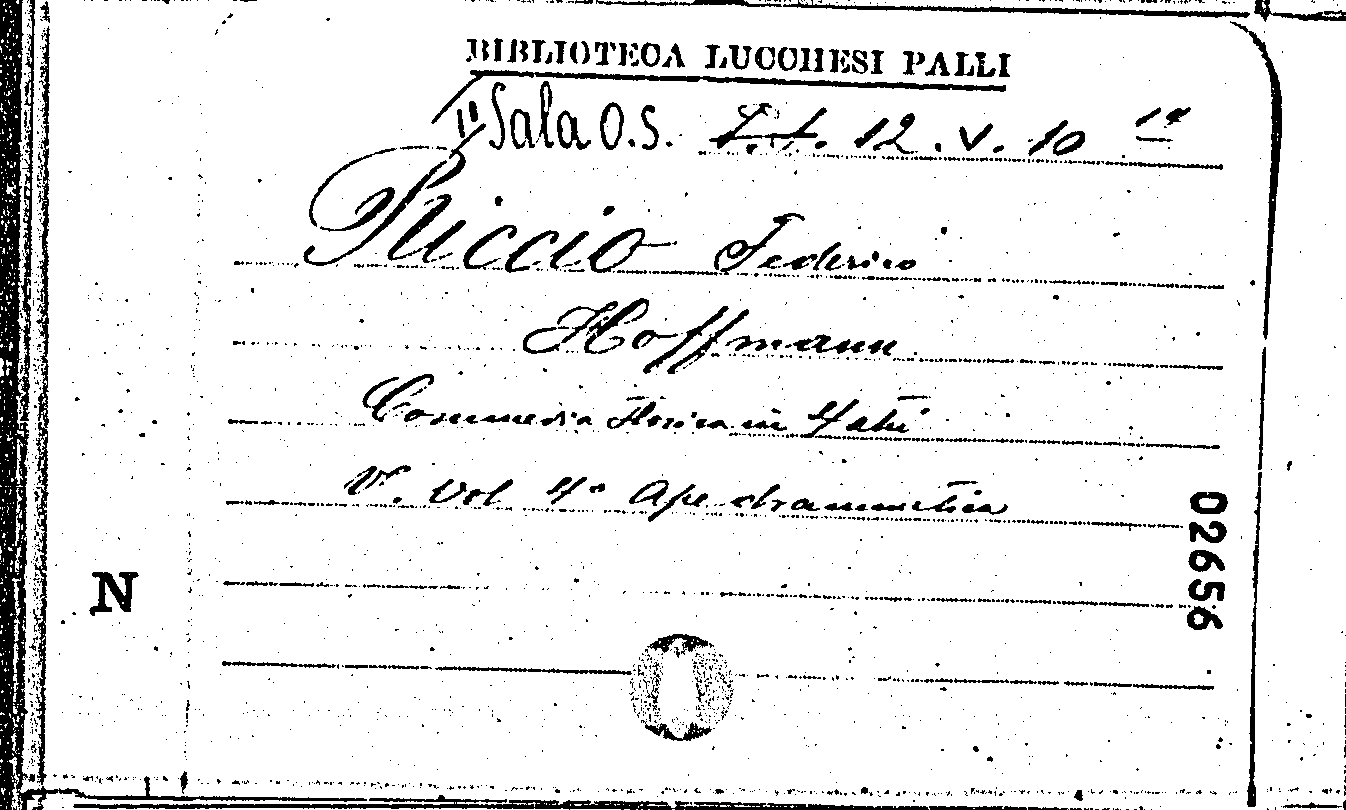 BIBLIOTECA LUCCHESI PALLI
IIª Sala O.S. 12. V. 10
Riccio Federico
Hoffmann
Commedia storica in 4 atti
V. Vol 4° Ape drammatica
N
02656